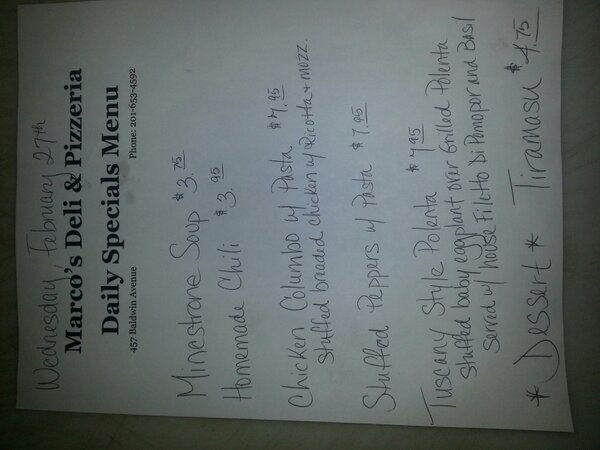 Wednesday, February 27th
Marco's Deli & Pizzeria
Daily Specials Menu
457 Baldwin Avenue Phone: 201-653-4592
Minestrone Soup $3.75
Homemade Chili $3.95
Chicken Columbo w/ Pasta $7.95
stuffed breaded chicken w/ Ricotta + mozz.
Stuffed Peppers w/ Pasta $7.95
Tuscany Style Polenta $7.95
stuffed baby eggplant over Grilled Polenta
Served w/ house Filetto Di Pomodor and Basil
* Dessert * Tiramasu $4.75